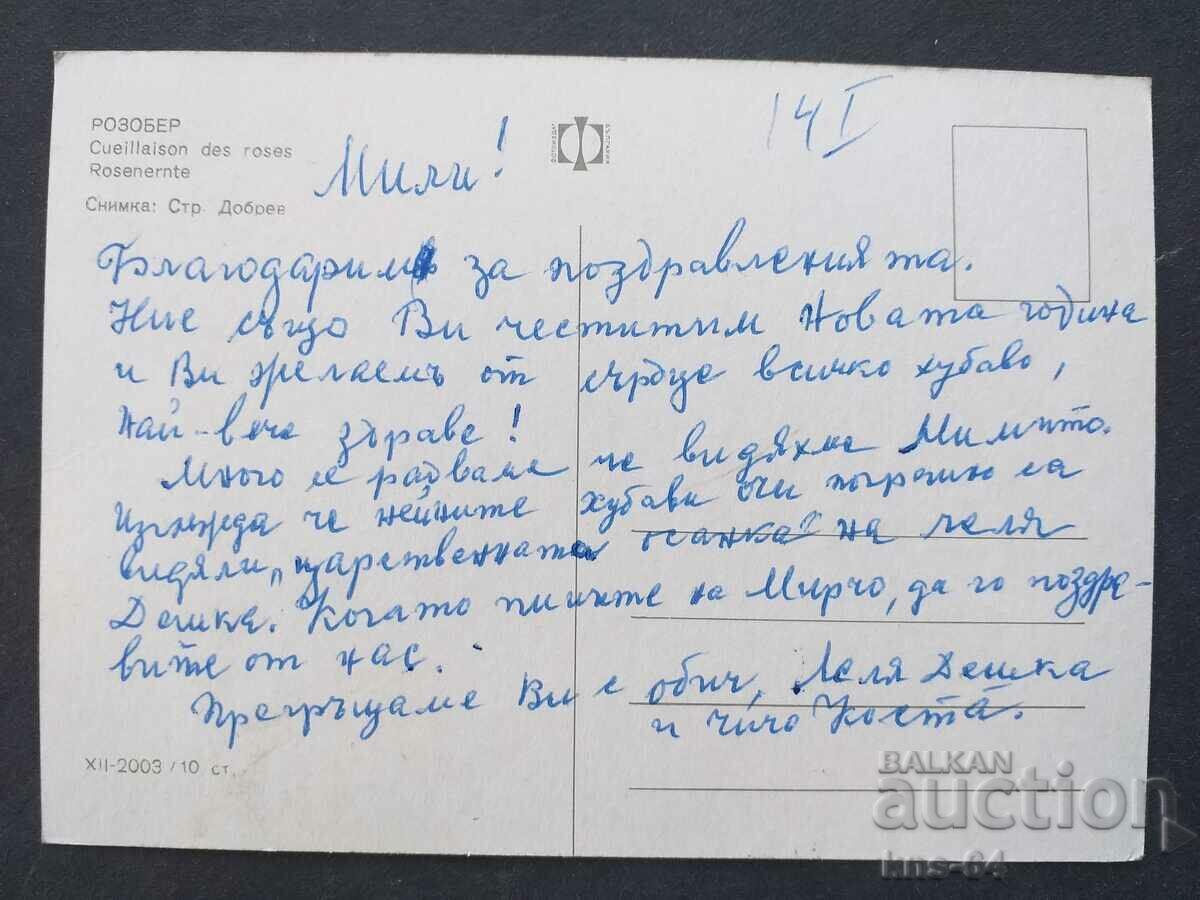 РОЗОБЕР
Cueillaison des roses
Rosenernte
Снимка: Стр. Добрев
ФОТОИЗДАТ
БЪЛГАРИЯ
14 I
Мили!
Благодарим за поздравленията.
Ние също Ви честитим Новата година
и Ви желаемъ от сърдце всичко хубаво,
Най-вече здраве!
Много се радваме че видяхме Мимито.
Изглежда че нейните хубави очи погрешно са
видяли „царствената осанка" на леля
Дешка. Когато пишите на Мирчо, да го поздра-
вите от нас.
Прегръщаме Ви с обич, Леля Дешка
и чичо Коста.
XII-2003/10 ст.
BALKAN
auction
kns-64